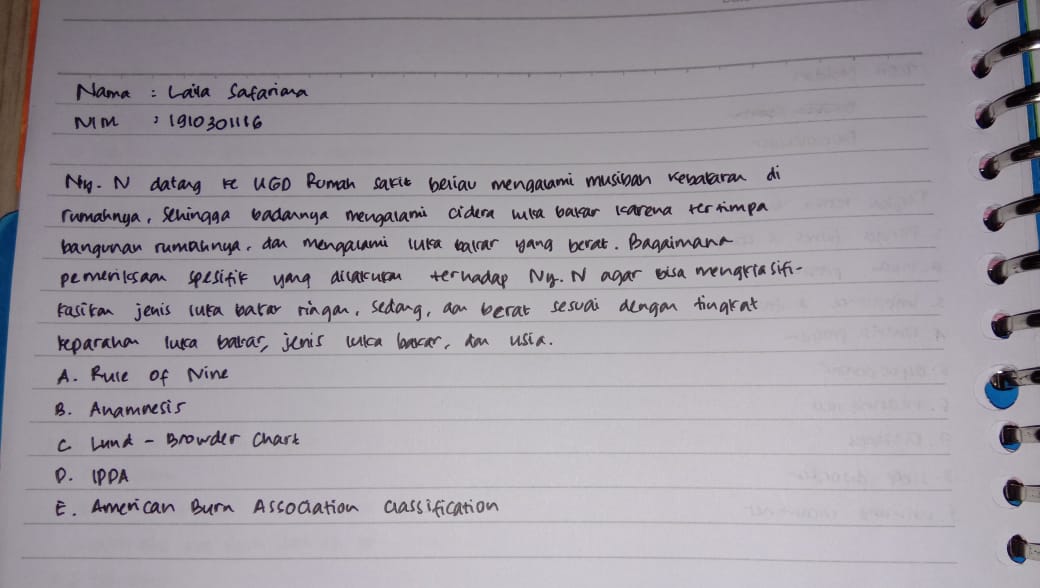 Nama : Laila Safariana
NIM : 1910301116
Ny. N datang ke UGD Rumah sakit beliau mengalami musibah kebakaran di
rumahnya, sehingga badannya mengalami cidera luka bakar karena tertimpa
bangunan rumahnya, dan mengalami luka bakar yang berat. Bagaimana
pemeriksaan spesifik yang dilakukan terhadap Ny. N agar bisa mengklasifi-
kasikan jenis luka bakar ringan, sedang, dan berat sesuai dengan tingkat
keparahan luka bakar, jenis luka bakar, dan usia.
A. Rule Of Nine
B. Anamnesis
C. Lund - Browder Chart
D. IPPA
E. American Burn Association Classification